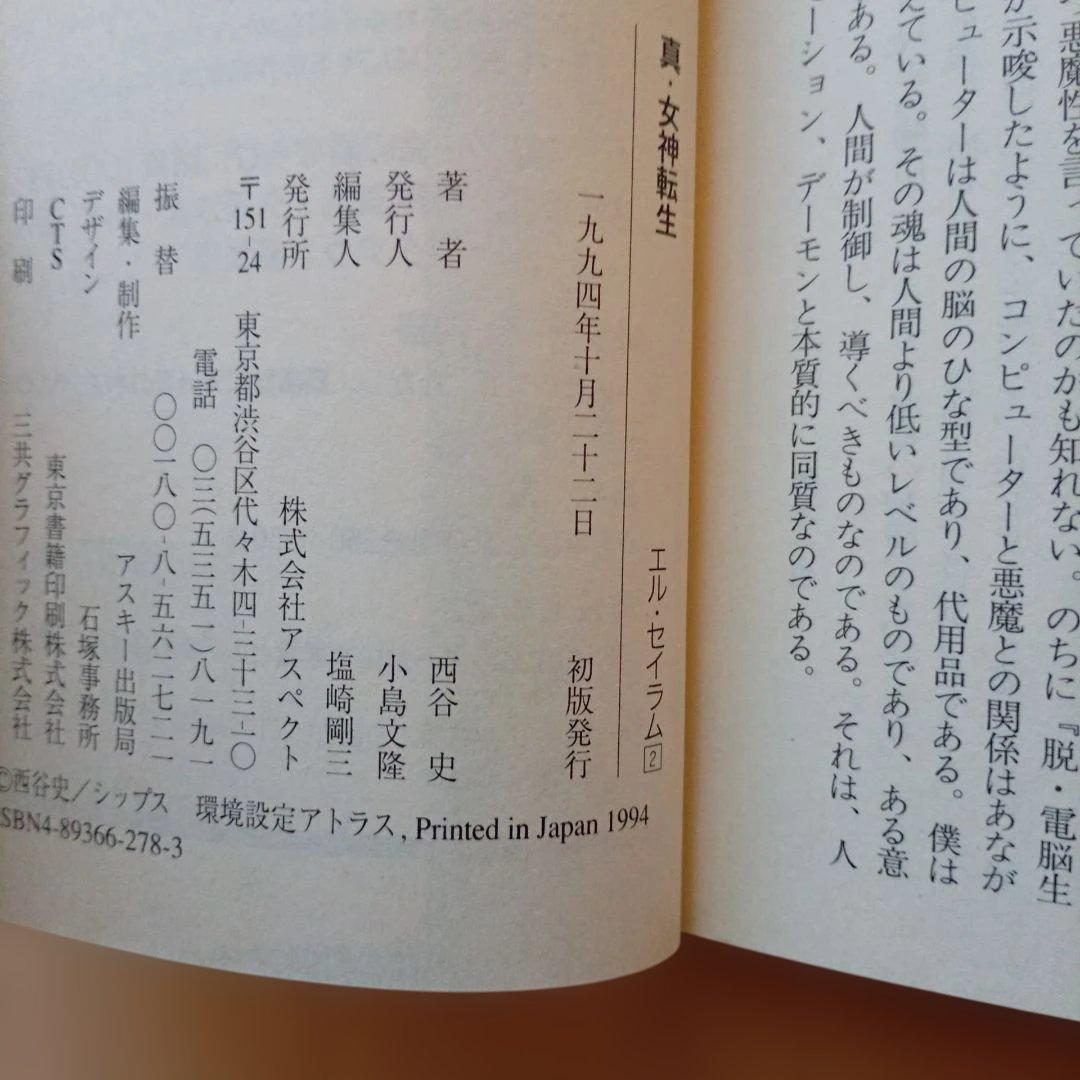 悪魔性を言っていたのかも知れない。のちに『脱・電脳生
が示唆したように、コンピューターと悪魔との関係はあなが
ピューターは人間の脳のひな型であり、代用品である。僕は
えている。その魂は人間より低いレベルのものであり、ある意
ある。人間が制御し、導くべきものなのである。それは、人
ーション、デーモンと本質的に同質なのである。
真・女神転生 エル・セイラム2
一九九四年十月二十二日 初版発行
著者 西谷 史
発行人 小島文隆
編集人 塩崎剛三
発行所 株式会社アスペクト
〒151-24 東京都渋谷区代々木四-三十三-一〇
電話 〇三(五三五一)八一九一
振替 〇〇一八〇-八-五六二七二一
編集・制作 アスキー出版局
デザイン 石塚事務所
CTS 東京書籍印刷株式会社
印刷 三共グラフィック株式会社
©西谷史/シップス 環境設定アトラス, Printed in Japan 1994
ISBN4-89366-278-3